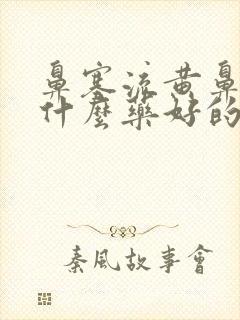 鼻塞流黄鼻
什麼藥好的
秦風故事會